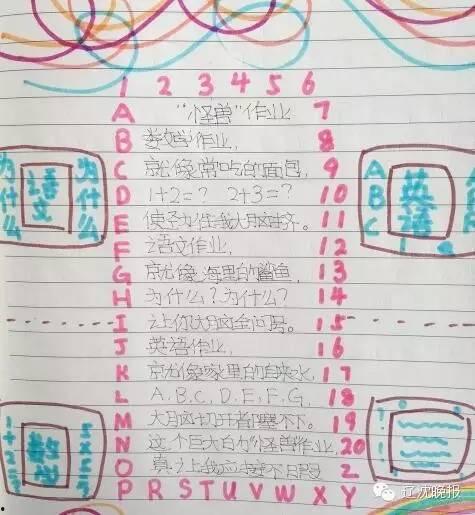 1 2 3 4 5 6
A "怪兽"作业 7
B 数学作业, 8
C 就像常吃的面包, 9
D 1+2=? 2+3=? 10
E 使劲往我大脑里挤。 11
F 语文作业, 12
G 就像海里的鲨鱼, 13
H 为什么?为什么? 14
I 让你大脑全问号。 15
J 英语作业, 16
K 就像家里的自来水, 17
L A、B、C、D、E、F、G, 18
M 大脑切开都塞不下。 19
N 这个巨大的"怪兽作业, 20
O 真让我应接不暇 2
P R S T U V W X Y
为什么
语文
为什么
A B C
英语
数学
辽沈晚报